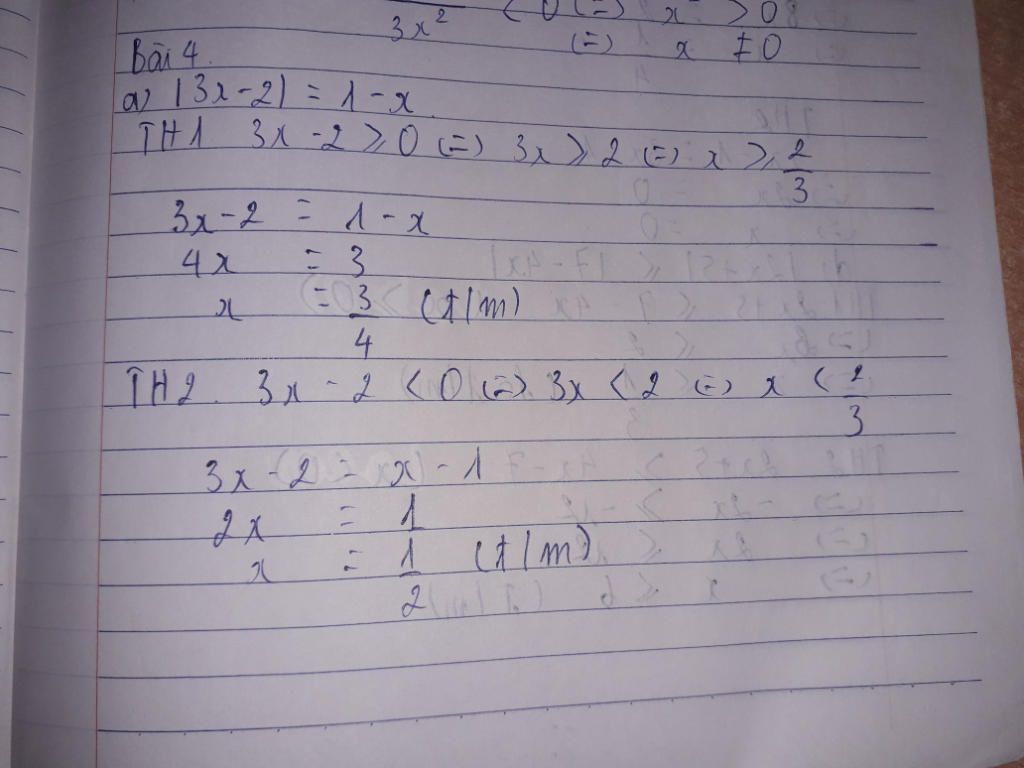 3x² < 0 (=) x > 0
(=) x ≠ 0
Bài 4.
a) |3x - 2| = 1 - x.
TH1. 3x - 2 ⩾ 0 (=) 3x ⩾ 2 (=) x ⩾ 2/3
3x - 2 = 1 - x
4x = 3
x = 3/4 (t/m)
TH2. 3x - 2 < 0 (=) 3x < 2 (=) x < 2/3
3x - 2 = x - 1
2x = 1
x = 1/2 (t/m)